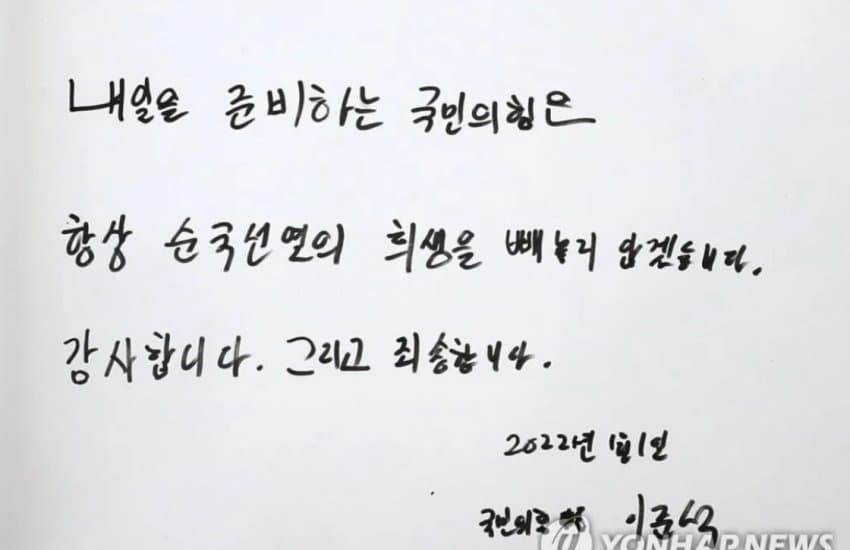 내일을 준비하는 국민의힘은
항상 순국선열의 희생을 빼놓지 않겠습니다.
감사합니다. 그리고 죄송합니다.
2022년 1월 1일
국민의힘 이준석
YONHAP NEWS